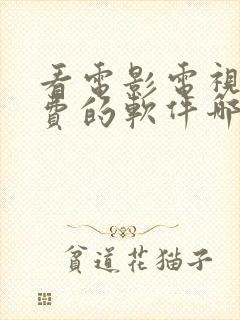 看電影電視
費的軟件哪
貧道花貓子